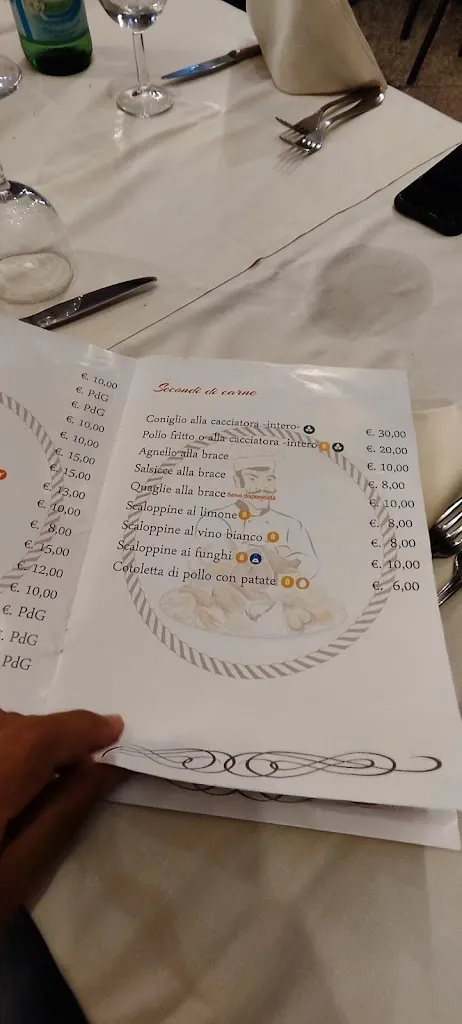 €. 10,00
€. PdG
€. PdG
€. 10,00
€. 10,00
€. 15,00
€. 15,00
€. 13,00
€. 10,00
€. 8,00
€. 15,00
€. 12,00
€. 10,00
€. PdG
€. PdG
PdG
Secondi di carne
Coniglio alla cacciatora -intero- €. 30,00
Pollo fritto o alla cacciatora -intero €. 20,00
Agnello alla brace €. 10,00
Salsicce alla brace €. 8,00
Quaglie alla brace Salvo disponibilità €. 10,00
Scaloppine al limone €. 8,00
Scaloppine al vino bianco €. 8,00
Scaloppine ai funghi €. 10,00
Cotoletta di pollo con patate €. 6,00